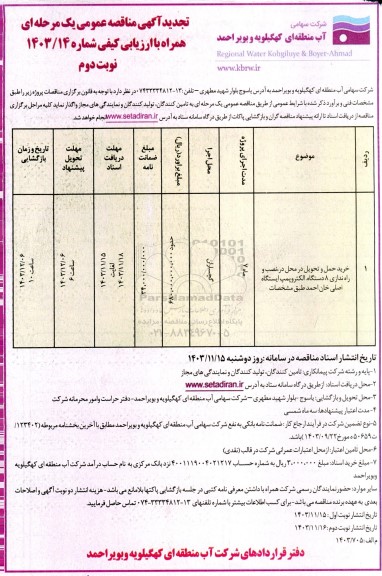 تجدید آگهی مناقصه عمومی یک مرحله ای
همراه با ارزیابی کیفی شماره ۱۴۰۳/۱۴
نوبت دوم
شرکت سهامی
آب منطقه ای کهگیلویه و بویر احمد
Regional Water Kohgiloye & Boyer-Ahmad
www.kbrw.ir
شرکت سهامی آب منطقه ای کهگیلویه و بویراحمد به آدرس یاسوج بلوار شهید مطهری - تلفن: ۱۳-۰۷۴۳۳۳۳۴۸۱۲ در نظر دارد با توجه به قانون برگزاری مناقصات پروژه زیر را طبق
مشخصات فنی و برآورد ذکر شده با شرایط عمومی از طریق مناقصه عمومی یک مرحله ای به تامین کنندگان، تولید کنندگان و نمایندگی های مجاز واگذار نماید کلیه مراحل برگزاری
مناقصه از دریافت اسناد تا ارائه پیشنهاد مناقصه گران و بازگشایی پاکات از طریق درگاه سامانه ستاد به آدرس www.setadiran.ir انجام خواهد شد.
ردیف
موضوع
مدت اجرای پروژه
محل اجرا
مبلغ برآورد (ریال)
مبلغ ضمانت نامه
مهلت دریافت اسناد
مهلت تحویل پیشنهاد
تاریخ و زمان بازگشایی
۱
خرید حمل و تحویل در محل در نصب و
راه اندازی ۸ دستگاه الکتروپمپ ایستگاه
اصلی خان احمد طبق مشخصات
گچساران
۱۴۰۳/۱۱/۱۵
لغایت
۱۴۰۳/۱۱/۱۸
۱۴۰۳/۱۲/۰۶
ساعت ۶
۱۴۰۳/۱۲/۰۶
ساعت ۱۰
ParsNamadData
۰۲۱-۸۸۳۴۹۶۷۰-۵
تاریخ انتشار اسناد مناقصه در سامانه: روز دوشنبه ۱۴۰۳/۱۱/۱۵
۱-پایه و رشته شرکت پیمانکاری: تامین کنندگان، تولید کنندگان و نمایندگی های مجاز
۲-محل دریافت اسناد: از طریق درگاه سامانه ستاد به آدرس www.setadiran.ir
۳-محل تحویل و بازگشایی: یاسوج - بلوار شهید مطهری - شرکت سهامی آب منطقه ای کهگیلویه و بویراحمد - دفتر حراست و امور محرمانه شرکت
۴-مدت اعتبار پیشنهادها: سه ماه شمسی
۵-نوع تضمین شرکت در فرآیند ارجاع کار: ضمانت نامه بانکی به نفع شرکت سهامی آب منطقه ای کهگیلویه و بویراحمد مطابق با آخرین بخشنامه مربوطه (۱۲۳۴۰۲/
ت۵۰۶۵۹ه مورخ ۱۴۰۲/۰۹/۲۲) باشد.
۶-محل تامین اعتبار: از محل اعتبارات عمرانی شرکت در قالب (نقدی)
۷-مبلغ خرید اسناد: مبلغ ۳.۰۰۰.۰۰۰ ریال به شماره حساب ۴۰۰۱۱۱۹۰۰۴۰۲۱۲۱۷ نزد بانک مرکزی به نام حساب درآمد شرکت آب منطقه ای کهگیلویه
و بویراحمد
سایر موارد: حضور نمایندگان رسمی شرکت همراه با داشتن معرفی نامه کتبی در جلسه بازگشایی پاکتها بلامانع می باشد - هزینه انتشار دو نوبت آگهی و اصلاحات
بعدی به عهده برنده مناقصه می باشد - برای کسب اطلاعات بیشتر با شماره تلفنهای ۱۳-۰۷۴۳۳۳۳۴۸۱۲ تماس حاصل فرمایید.
تاریخ انتشار نوبت اول: ۱۴۰۳/۱۱/۱۵
تاریخ انتشار نوبت دوم: ۱۴۰۳/۱۱/۱۶
م الف: ۱۴۰۳/۷۰۵
دفتر قراردادهای شرکت آب منطقه ای کهگیلویه و بویر احمد